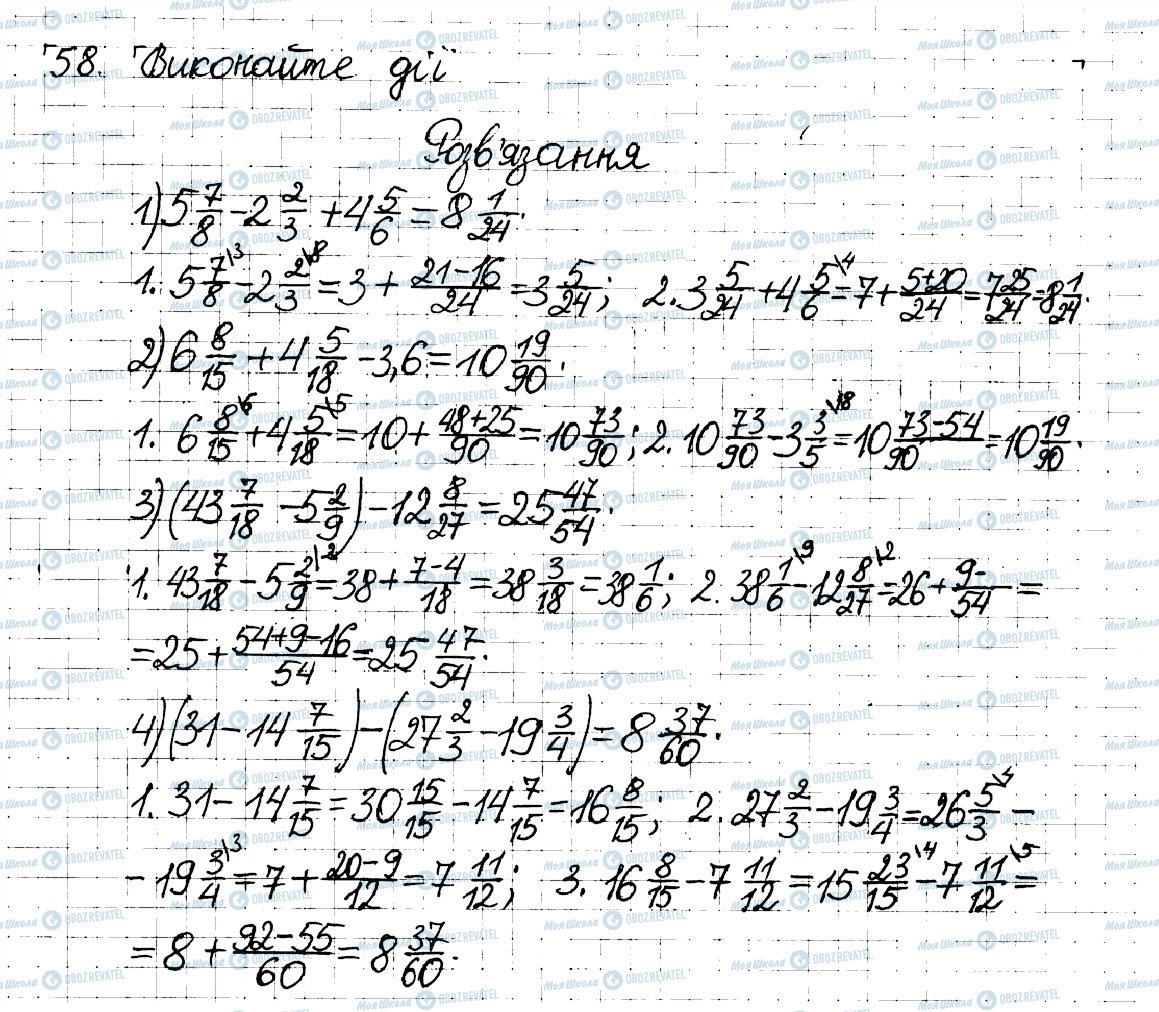 58. Виконайте дії
Розв'язання
1) 5 7/8 - 2 2/3 + 4 5/6 = 8 1/24.
1. 5 7/8\3 - 2 2/3\8 = 3 + (21-16)/24 = 3 5/24; 2. 3 5/24 + 4 5/6\4 = 7 + (5+20)/24 = 7 25/24 = 8 1/24.
2) 6 8/15 + 4 5/18 - 3,6 = 10 19/90.
1. 6 8/15\6 + 4 5/18\5 = 10 + (48+25)/90 = 10 73/90; 2. 10 73/90 - 3 3/5\18 = 10 (73-54)/90 = 10 19/90.
3) (43 7/18 - 5 2/9) - 12 8/27 = 25 47/54.
1. 43 7/18 - 5 2/9\2 = 38 + (7-4)/18 = 38 3/18 = 38 1/6; 2. 38 1/6\9 - 12 8/27\2 = 26 + (9-)/54 =
= 25 + (54+9-16)/54 = 25 47/54.
4) (31 - 14 7/15) - (27 2/3 - 19 3/4) = 8 37/60.
1. 31 - 14 7/15 = 30 15/15 - 14 7/15 = 16 8/15; 2. 27 2/3 - 19 3/4 = 26 5/3\4 -
- 19 3/4\3 = 7 + (20-9)/12 = 7 11/12; 3. 16 8/15 - 7 11/12 = 15 23/15\4 - 7 11/12\5 =
= 8 + (92-55)/60 = 8 37/60.
МояШкола OBOZREVATEL